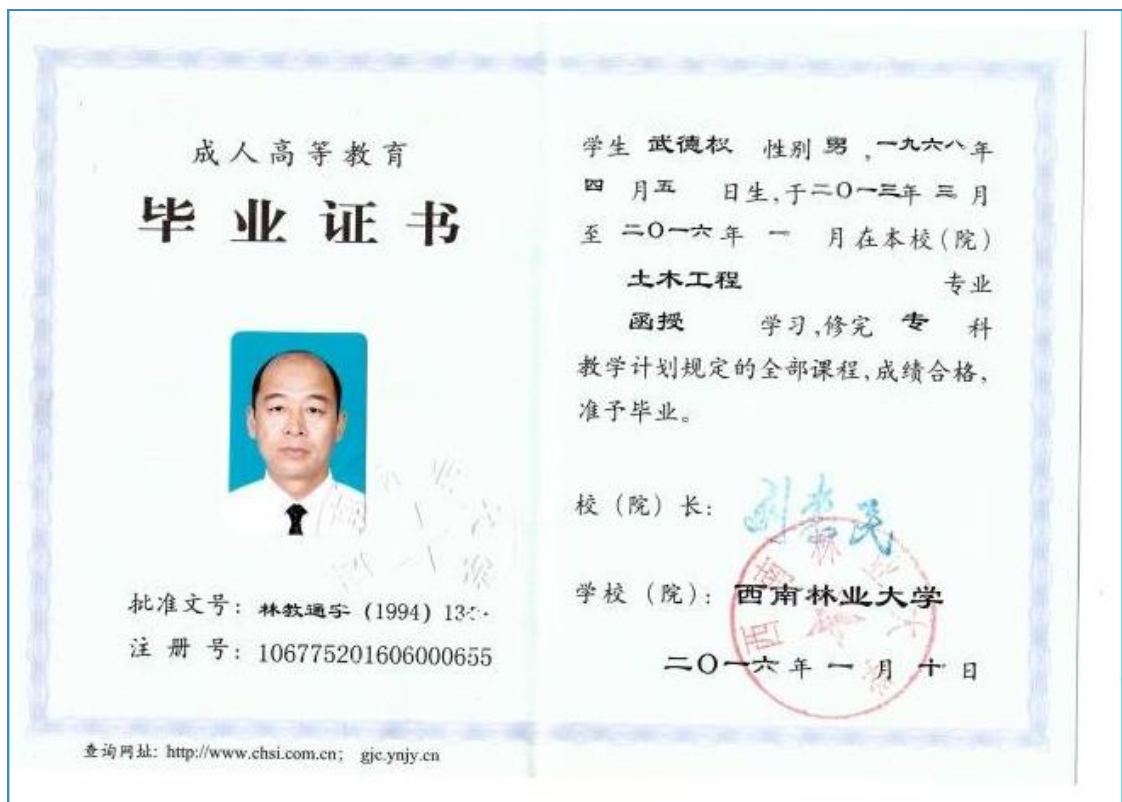 成人高等教育
毕业证书
批准文号：林教通字 (1994) 13
注 册 号：106775201606000655
查询网址: http://www.chsi.com.cn; gjc.ynjy.cn
学生 武德权 性别 男 ，一九六八年
四 月五 日生，于二〇一三年 三 月
至 二〇一六年 一 月在本校(院)
土木工程 专业
函授 学习，修完 专 科
教学计划规定的全部课程，成绩合格，
准予毕业。
校 (院) 长：
学校 (院)：西南林业大学
西南林业大学
二〇一六年 一 月 十 日